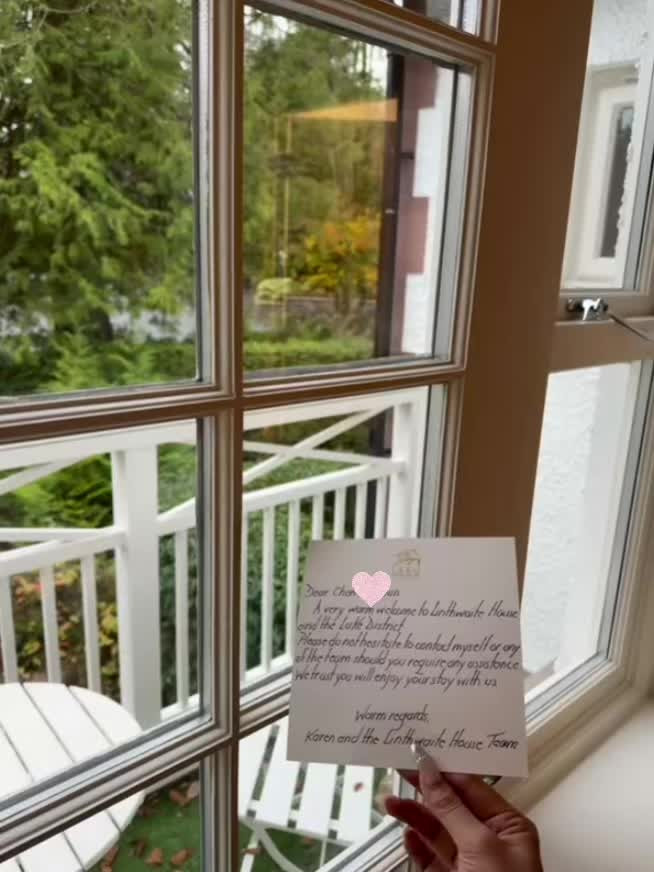 Dear
A very warm welcome to Linthwaite House
and the Lake District.
Please do not hesitate to contact myself or any
of the team should you require any assistance.
We trust you will enjoy your stay with us.
Warm regards,
Karen and the Linthwaite House Team